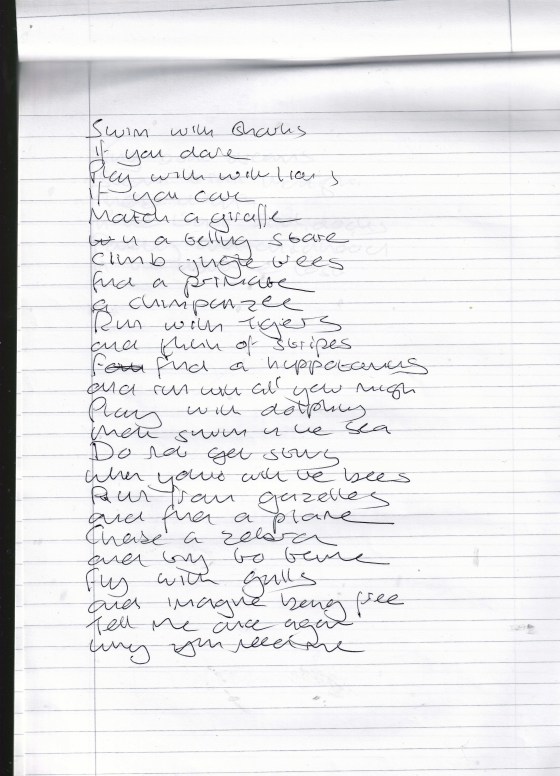 Swim with sharks
If you dare
Play with with lions
If you care
Match a giraffe
in a telling stare
Climb jungle trees
find a primate
a chimpanzee
Run with tigers
and think of stripes
find a hippopotamus
and run with all your might
Play with dolphins
when swim in the sea
Do not get stung
when your with the bees
Run from gazelles
and find a plane
Chase a zebra
and try to tame
Fly with gulls
and imagine being free
Tell me once again
why you me